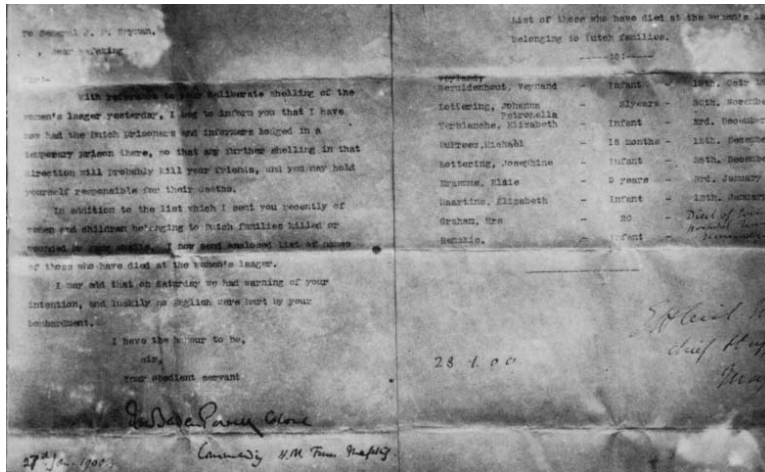 To General J. P. Snyman,
near Mafeking
Sir,
With reference to your deliberate shelling of the
women's laager yesterday, I beg to inform you that I have
now had the Dutch prisoners and informers lodged in a
temporary prison there, so that any further shelling in that
direction will probably kill your friends, and you may hold
yourself responsible for their deaths.
In addition to the list which I sent you recently of
women and children belonging to Dutch families killed or
wounded by your shells. I now send enclosed list of names
of those who have died at the women's laager.
I may add that on Saturday we had warning of your
intention, and luckily no English were hurt by your
bombardment.
I have the honour to be,
Sir,
Your obedient servant
Baden Powell Colonel
Commanding H.M Forces Mafeking
27th Jan 1900
List of those who have died at the women's
belonging to Dutch families.
- Infant -
Lottering, Johanna - years - 30th. November
Petronella
Terblanche, Elizabeth - Infant - 3rd. December
Michael - 18 months - 15th. December
Lottering, Josephine - Infant - December
Erasmus, - 9 years - 3rd. January
Maartins, Elizabeth - Infant - January
Graham, Mrs - 20 - Died of
- Infant -
28.1.00